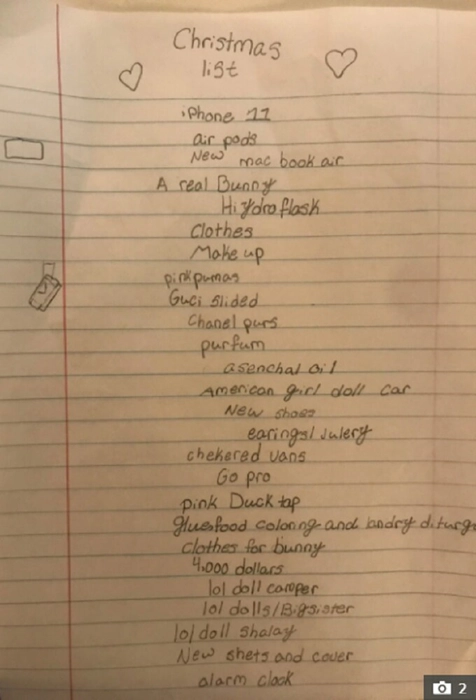 Christmas
list
iPhone 11
air pods
New mac book air
A real Bunny
Hiydroflask
Clothes
Make up
pink pumas
Guci slided
Chanel purs
purfum
asenchal oil
American girl doll car
New shoes
earings/julery
chekered vans
Go pro
pink Duck tap
glue food coloring and landry diturg
clothes for bunny
4,000 dollars
lol doll camper
lol dolls/Bigsister
lol doll shalay
New shets and cover
alarm clock
2